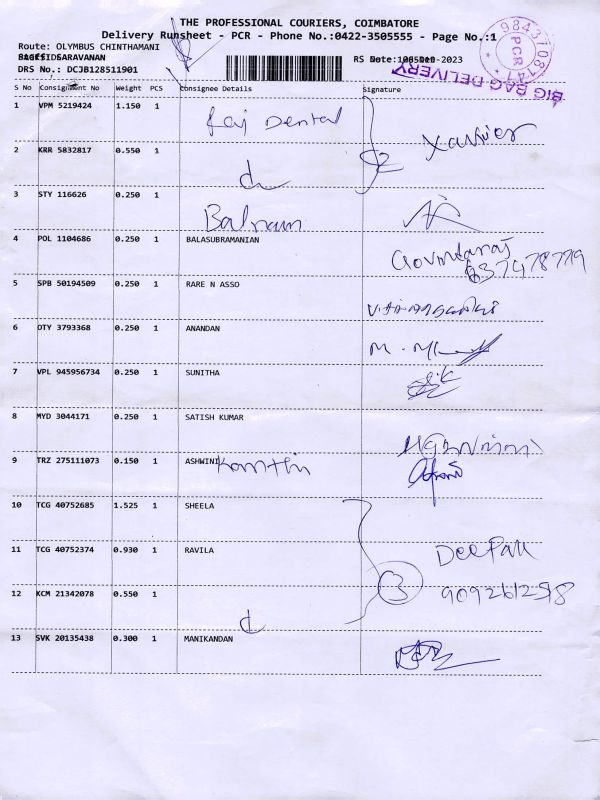 THE PROFESSIONAL COURIERS, COIMBATORE
Delivery Runsheet - PCR - Phone No.:0422-3505555 - Page No.:1
Route: OLYMBUS CHINTHAMANI
SARAVANAN
RS
DRS No.: DCJB128511901
984310814
PCR
BIG BAG DELIVERY
S No Consignment No Weight PCS Consignee Details Signature
1 VPM 5219424 1.150 1 Raj Dental
Xavier
2 KRR 5832817 0.550 1 2
3 STY 116626 0.250 1 Balram
4 POL 1104686 0.250 1 BALASUBRAMANIAN Govindaraj
5 SPB 50194509 0.250 1 RARE N ASSO
6 OTY 3793368 0.250 1 ANANDAN
7 VPL 945956734 0.250 1 SUNITHA
8 MYD 3044171 0.250 1 SATISH KUMAR
9 TRZ 275111073 0.150 1 ASHWINI
10 TCG 40752685 1.525 1 SHEELA
11 TCG 40752374 0.930 1 RAVILA Deepak
12 KCM 21342078 0.550 1 3
13 SVK 20135438 0.300 1 MANIKANDAN